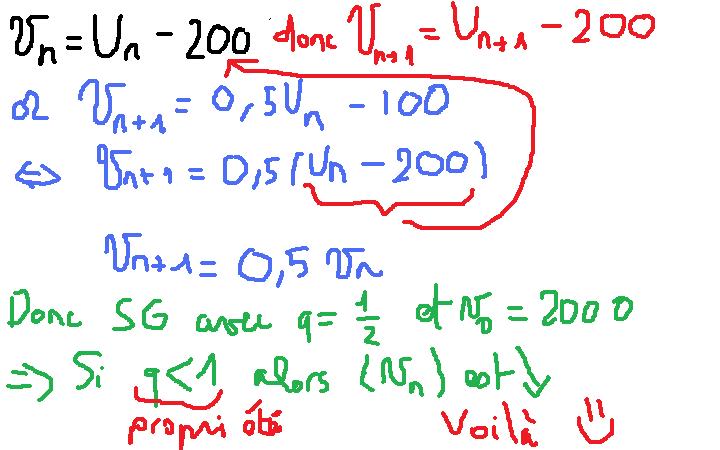 Vn = Un - 200 donc Vn+1 = Un+1 - 200
or Vn+1 = 0,5Un - 100
⇔ Vn+1 = 0,5(Un - 200)
Vn+1 = 0,5 Vn
Donc SG avec q = 1/2 et V0 = 2000
=> Si q < 1 alors (Vn) est ↘
propriété Voilà =)